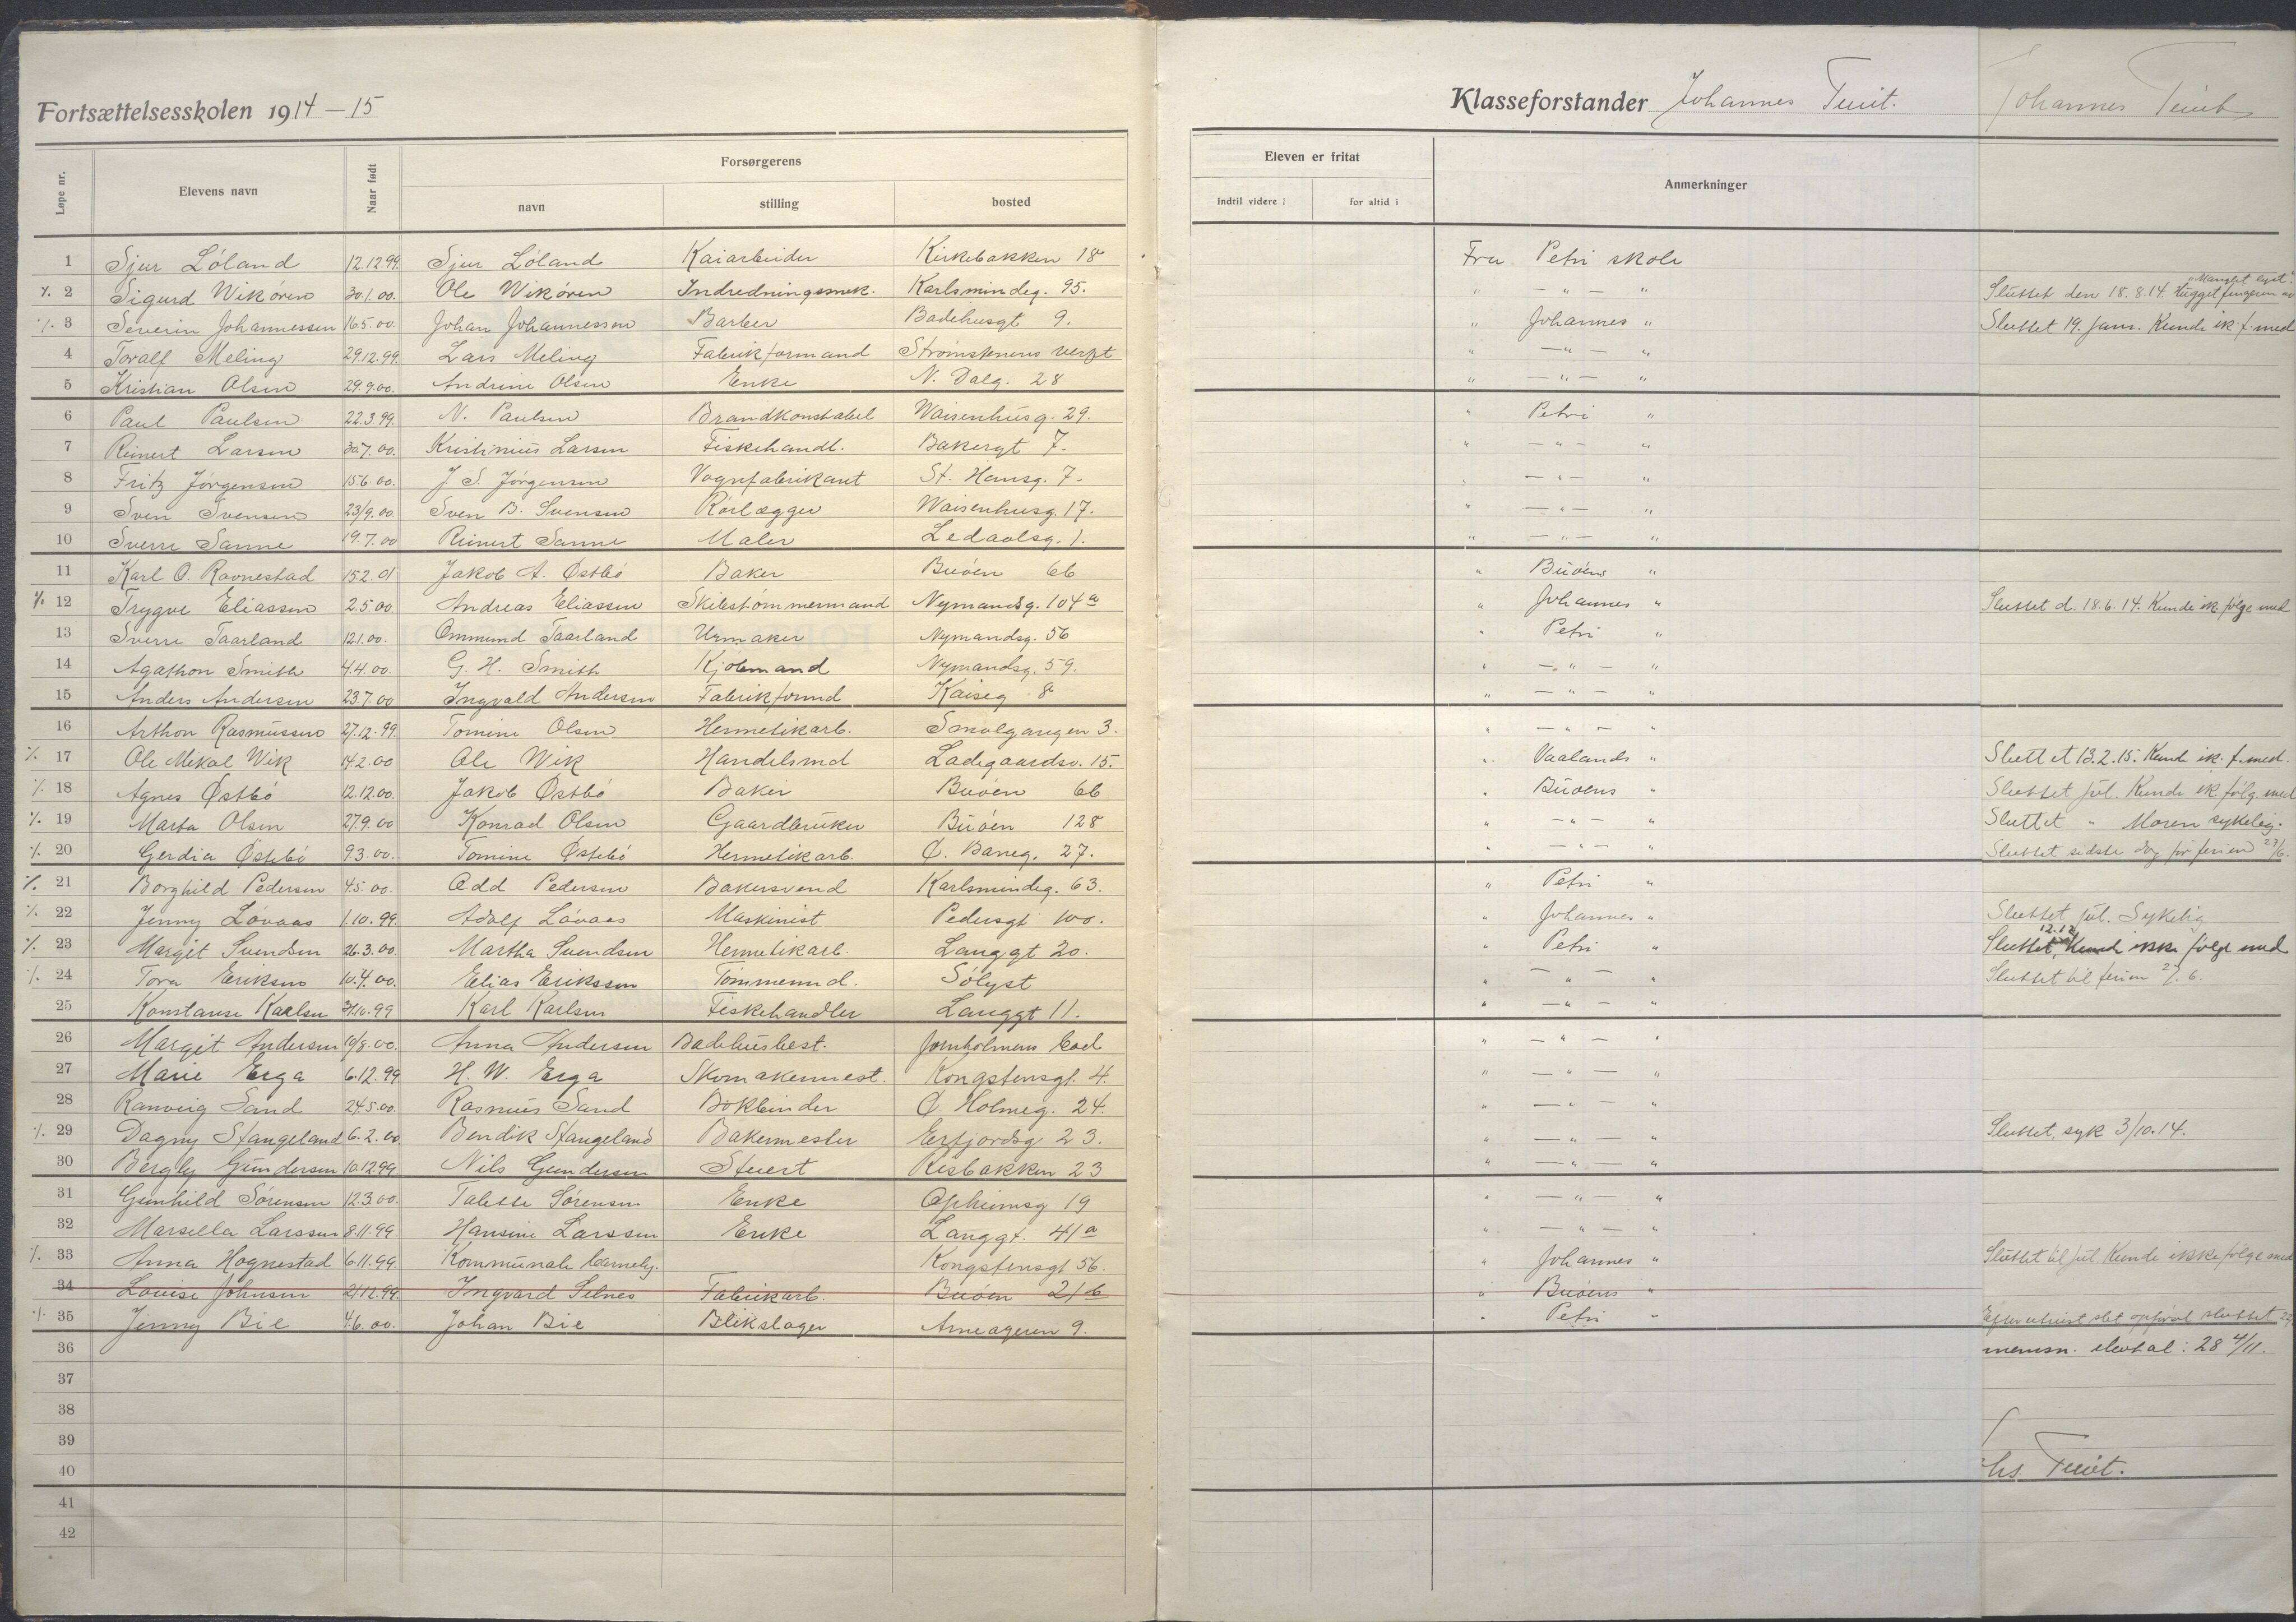 Fortsættelsesskolen 1914 - 15
Klasseforstander Johannes Tveit.
Johannes Tveit
Løpe nr. Elevens navn Naar født Forsørgerens navn stilling bosted Eleven er fritat indtil videre i for altid i Anmerkninger
1 Sjur Löland 12.12.99. Sjur Löland Kaiarbeider Kirkebakken 18 Fra Petri skole
% 2 Sigurd Wikören 30.1.00. Ole Wikören Indredningssnek. Karlsmindeg. 95. " — " — " Sluttet den 18.8.14. Hugget fingeren av
% 3 Severin Johannessen 16.5.00. Johan Johannessen Barber Badehusgt 9. " Johannes " Sluttet 19. jan. Kunde ik. f. med
4 Toralf Meling 29.12.99. Lars Meling Fabrikformand Strömstenens verft " — " — "
5 Kristian Olsen 29.9.00. Andrine Olsen Enke N. Dalg. 28 " — " — "
6 Paul Paulsen 22.3.99. N. Paulsen Brandkonstabel Waisenhusg. 29. " Petri "
7 Reinert Larsen 30.7.00. Kristinius Larsen Fiskehandl. Bakergt 7. " — " — "
8 Fritz Jörgensen 15.6.00. J. S. Jörgensen Vognfabrikant St. Hansg. 7. " — " — "
9 Sven Svensen 23/9.00. Sven B. Svensen Rörlægger Waisenhusg. 17. " — " — "
10 Sverre Sanne 19.7.00 Reinert Sanne Maler Ledaalsg. 1. " — " — "
11 Karl O. Ravnestad 15.2.01 Jakob A. Østbö Baker Buöen 66 " Buöens "
% 12 Trygve Eliassen 2.5.00. Andreas Eliassen Skibstömmermand Nymandsg. 104a " Johannes " Sluttet d. 18.6.14. Kunde ik. følge med
13 Sverre Taarland 12.1.00. Ommund Taarland Urmaker Nymandsg. 56 " Petri "
14 Agathon Smith 4.4.00. G. H. Smith Kjöbmand Nymandsg. 59. " — " — "
15 Anders Andersen 23.7.00 Ingvald Andersen Fabrikformd Kaiseg 8 " — " — "
16 Arthon Rasmussen 27.12.99. Tomine Olsen Hermetikarb. Smalgangen 3. " — " — "
% 17 Ole Mikal Wik 14.2.00 Ole Wik Handelsmd Ladegaardsv. 15. " Vaalands " Sluttet 13.2.15. Kunde ik. f. med.
% 18 Agnes Østbö 12.12.00. Jakob Østbö Baker Buöen 66 " Buöens " Sluttet jul. Kunde ik. følg. med
% 19 Marta Olsen 27.9.00 Konrad Olsen Gaardbruker Buöen 128 " — " — " Sluttet " Moren sykelig.
% 20 Gerdia Østebö 9.3.00. Tomine Østebö Hermetikarb. Ø. Baneg. 27. " — " — " Sluttet sidste dag før ferien 27/6.
% 21 Borghild Pedersen 4.5.00. Odd Pedersen Bakersvend Karlsmindeg. 63. " Petri "
% 22 Jenny Lövaas 1.10.99. Adolf Lövaas Maskinist Pedersgt 100. " Johannes " Sluttet jul. Sykelig
% 23 Margit Svendsen 26.3.00. Martha Svendsen Hermetikarb. Langgt 20. " Petri " Sluttet 12.12 Kunde ikke følge med
% 24 Tora Eriksen 10.4.00. Elias Erikssen Tömmermd. Sölyst " — " — " Sluttet til ferien 27/6.
25 Konstanse Kaalsen 31.10.99 Karl Karlsen Fiskehandler Langgt 11. " — " — "
26 Margit Andersen 10/8.00. Anna Andersen Badehusbest. Jomholmens bad " — " — "
27 Marie Erga 6.12.99 H. W. Erga Skomakermest. Kongstensgt. 4. " — " — "
28 Ranveig Sand 24.5.00. Rasmus Sand Bokbinder Ø. Holmeg. 24. " — " — "
% 29 Dagny Stangeland 6.2.00 Bendik Stangeland Bakermester Erfjordsg 23. " — " — " Sluttet, syk 3/10.14.
30 Bergly Gundersen 10.12.99 Nils Gundersen Stuert Risbakken 23 " — " — "
31 Gunhild Sörensen 12.3.00. Talette Sörensen Enke Opheimsg 19 " — " — "
32 Marsella Larssen 8.11.99. Hansine Larssen Enke Langgt. 41a " — " — "
% 33 Anna Hognestad 6.11.99. Kommunale barnehj. Kongstensgt 56. " Johannes " Sluttet til jul Kunde ikke følge med
34 Lovise Johnsen 21.12.99. Ingvard Selnes Fabrikarb. Buöen 21b " Buöens "
% 35 Jenny Bie 4.6.00. Johan Bie Blikslager Arneageren 9. " Petri " sluttet
36 elevtal: 28 4/11.
37
38
39
40 Tveit.
41
42